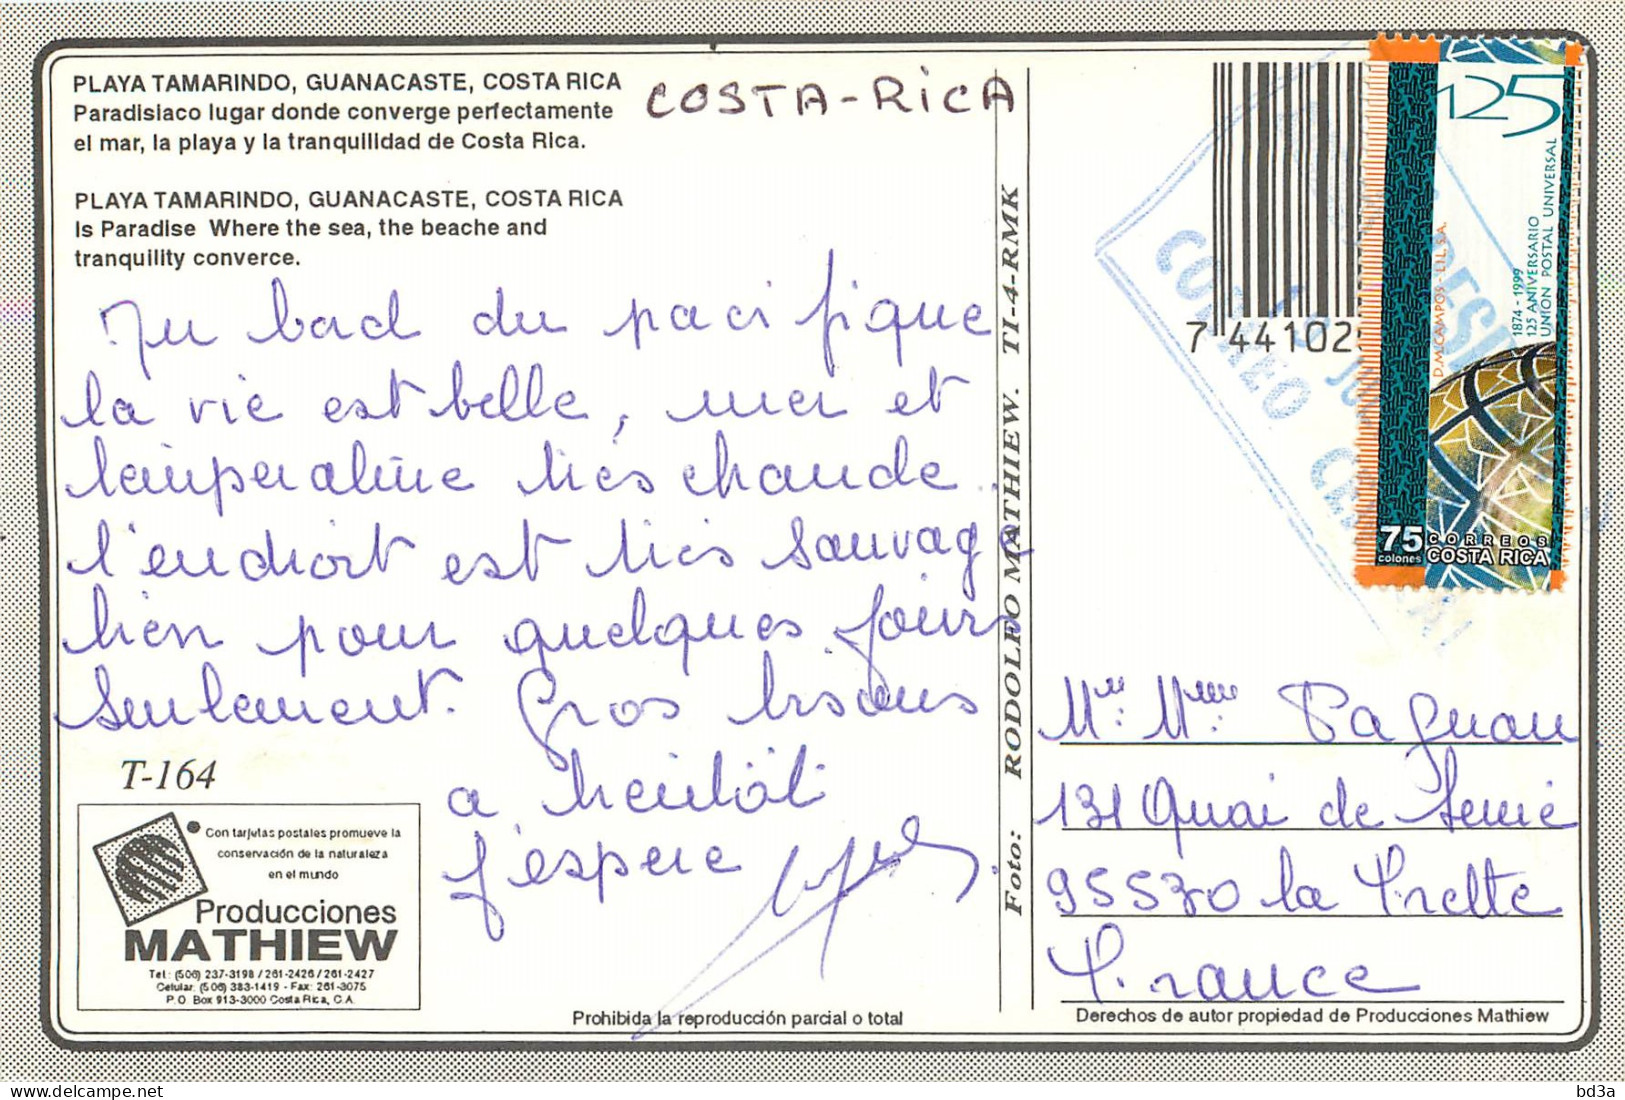 PLAYA TAMARINDO, GUANACASTE, COSTA RICA
Paradisiaco lugar donde converge perfectamente
el mar, la playa y la tranquilidad de Costa Rica.
COSTA-RiCA
PLAYA TAMARINDO, GUANACASTE, COSTA RICA
Is Paradise Where the sea, the beache and
tranquility converce.
Au bord du pacifique
la vie est belle, mer et
température très chaude.
l'endroit est très sauvage
bien pour quelques jours
seulement. Gros bisous
a bientôt
j'espère
T-164
Con tarjetas postales promueve la
conservación de la naturaleza
en el mundo
Producciones
MATHIEW
Tel.: (506) 237-3198 / 261-2426 / 261-2427
Celular: (506) 383-1419 - Fax: 261-3075
P.O. Box 913-3000 Costa Rica, C.A.
Prohibida la reproducción parcial o total
Foto: RODOLFO MATHIEW. TI-4-RMK
7 44102
CORREO
125
D.M.CAMPOS-LIL, S.A.
1874 - 1999
125 ANIVERSARIO
UNION POSTAL UNIVERSAL
75
colones
CORREOS
COSTA RICA
Mr. Mme. Pagnou
131 Quai de Seine
95530 la Frette
France
Derechos de autor propiedad de Producciones Mathiew
delcampe.net
bd3a